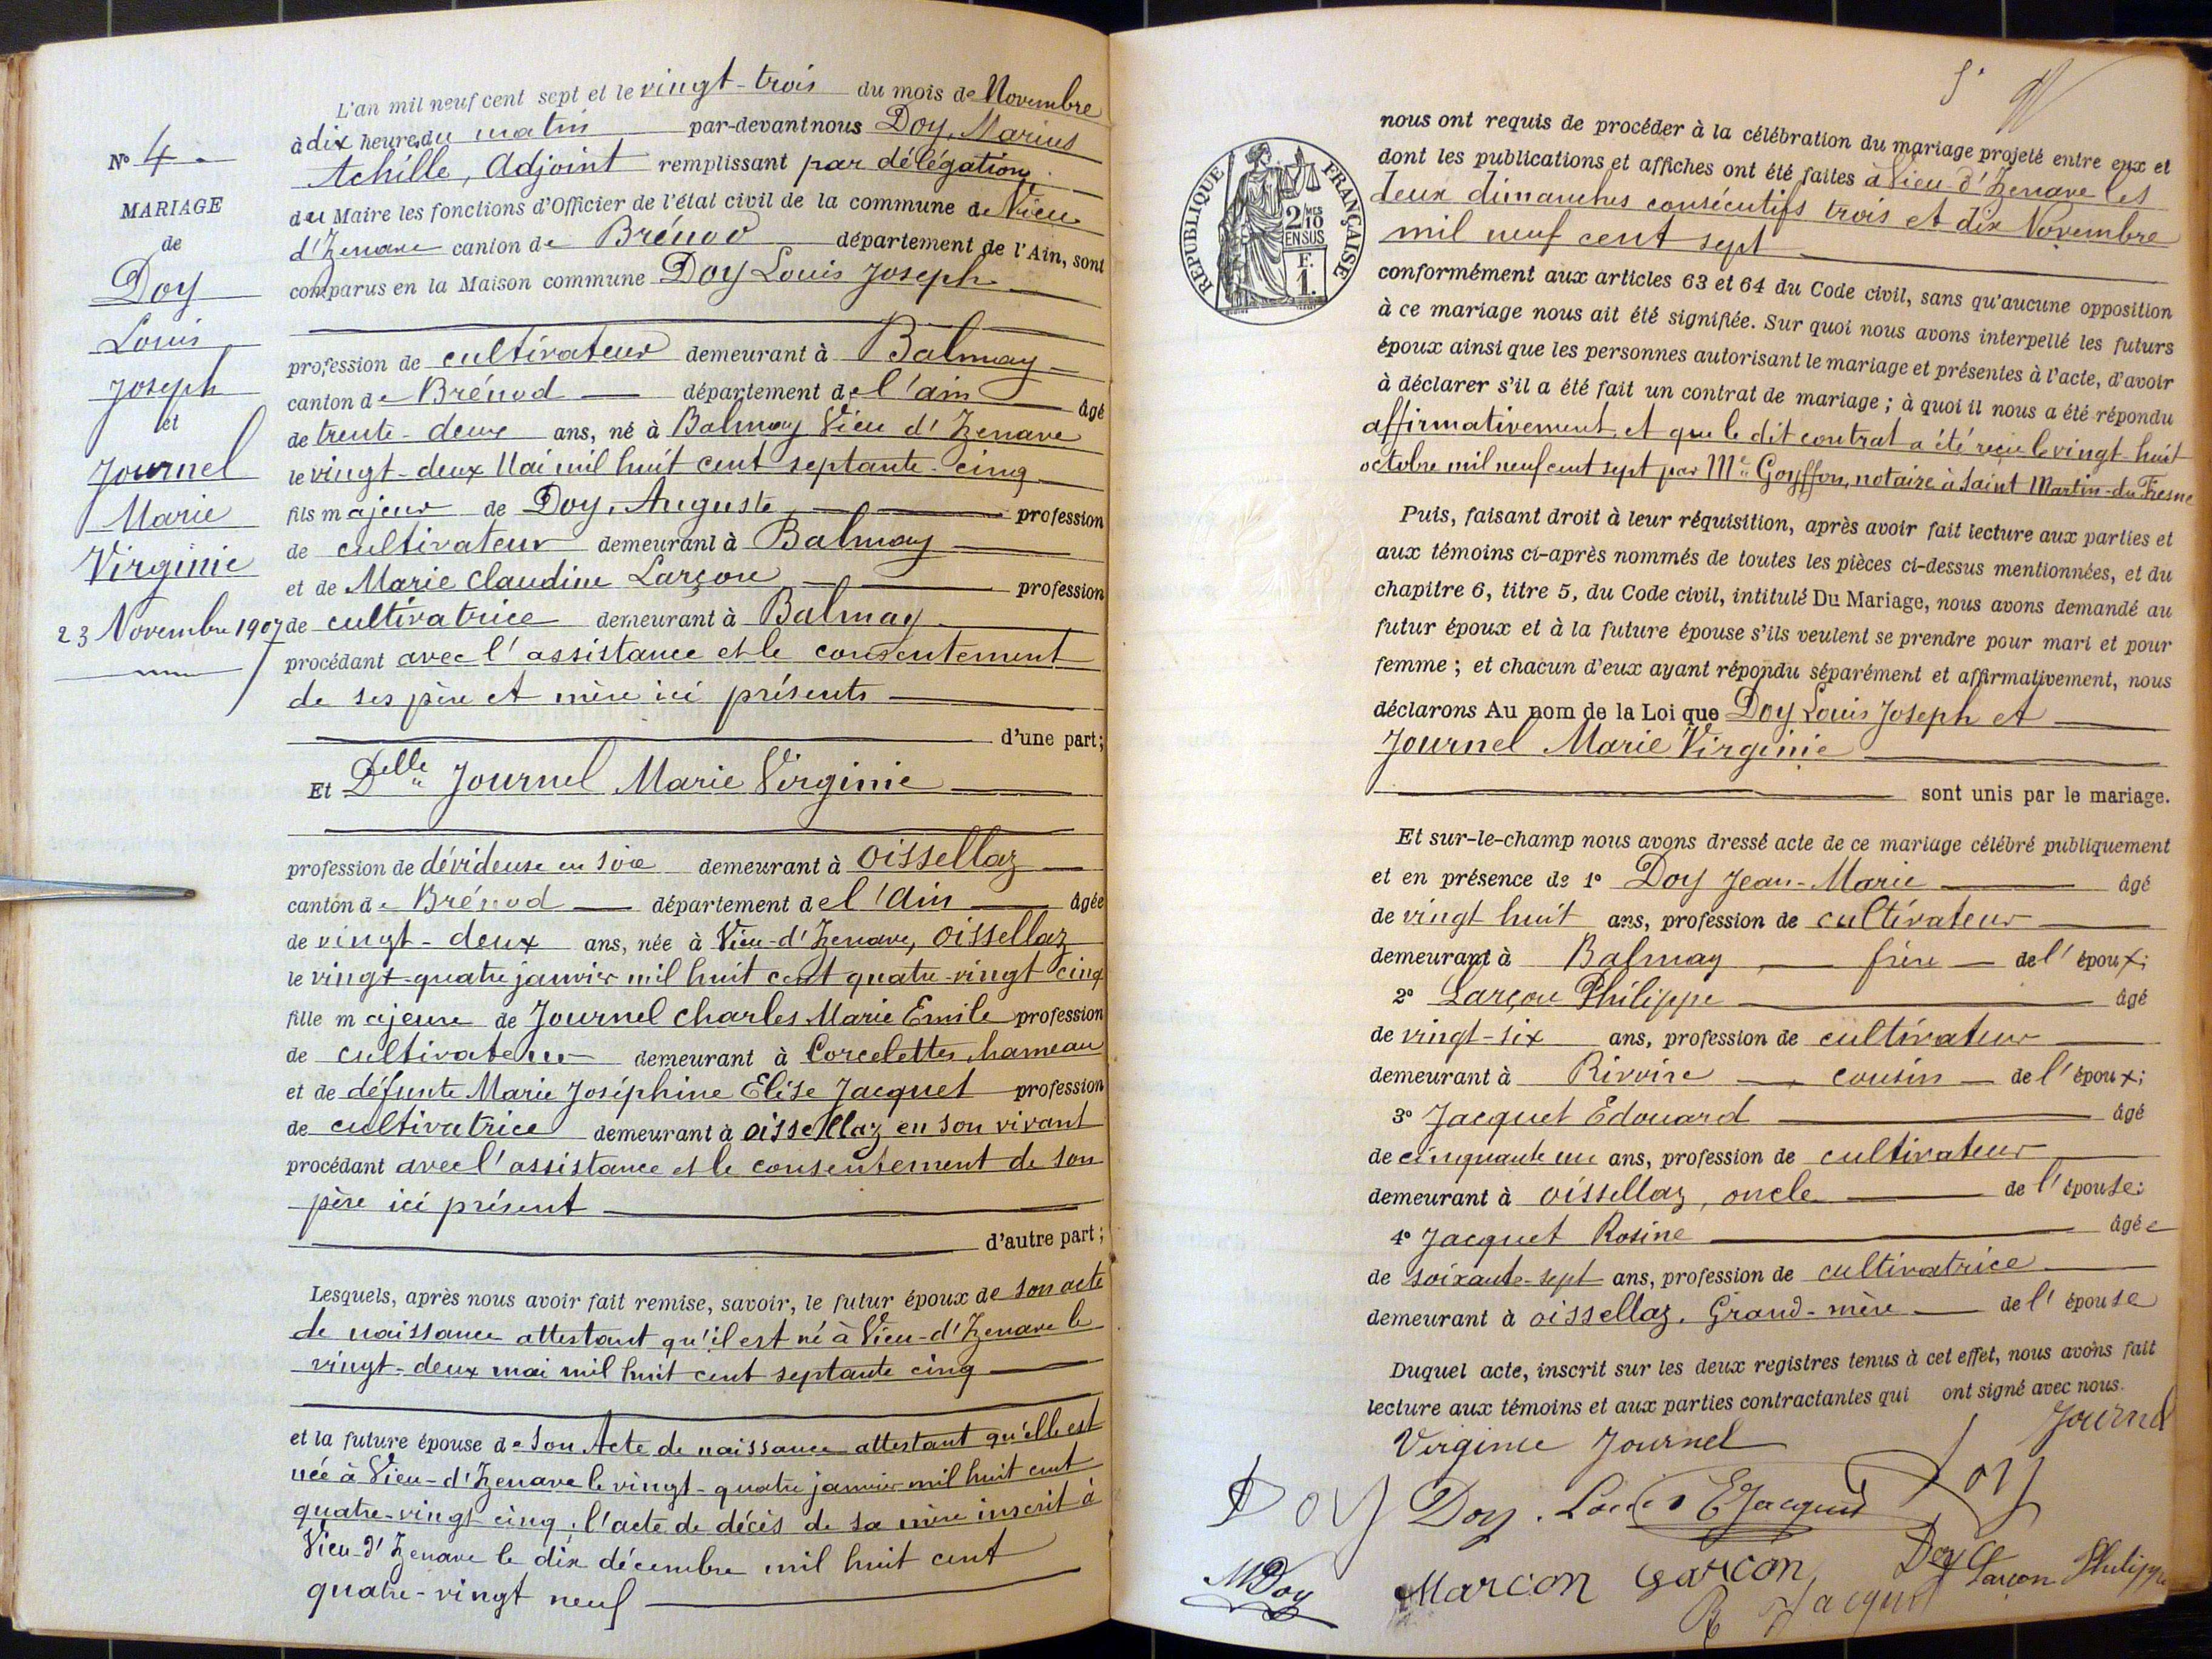 L'an mil neuf cent sept et le vingt-trois du mois de Novembre
à dix heures du matin par-devant nous Doy, Marius
Achille, Adjoint remplissant par délégation
du Maire les fonctions d'Officier de l'état civil de la commune de Vieu
d'Izenave canton de Brénod département de l'Ain, sont
comparus en la Maison commune Doy Louis Joseph
profession de cultivateur demeurant à Balmay
canton de Brénod département de l'ain âgé
de trente-deux ans, né à Balmay Vieu d'Izenave
le vingt-deux Mai mil huit cent septante-cinq
fils majeur de Doy, Auguste, profession
de cultivateur demeurant à Balmay
et de Marie Claudine Larçon profession
de cultivatrice demeurant à Balmay
procédant avec l'assistance et le consentement
de ses père et mère ici présents
d'une part;
Et Delle Journel Marie Virginie
profession de dévideuse en soie demeurant à Oissellaz
canton de Brénod département de l'Ain âgée
de vingt-deux ans, née à Vieu-d'Izenave, Oissellaz
le vingt-quatre janvier mil huit cent quatre-vingt cinq
fille majeure de Journel Charles Marie Emile profession
de cultivateur demeurant à Corcelettes, hameau
et de défunte Marie Joséphine Elise Jacquet profession
de cultivatrice demeurant à oissellaz en son vivant
procédant avec l'assistance et le consentement de son
père ici présent
d'autre part;
Lesquels, après nous avoir fait remise, savoir, le futur époux de son acte
de naissance attestant qu'il est né à Vieu-d'Izenave le
vingt-deux mai mil huit cent septante cinq
et la future épouse de son Acte de naissance attestant qu'elle est
née à Vieu-d'Izenave le vingt-quatre janvier mil huit cent
quatre-vingt cinq, l'acte de décès de sa mère inscrit à
Vieu-d'Izenave le dix décembre mil huit cent
quatre-vingt neuf
No 4
MARIAGE
de
Doy
Louis
Joseph
et
Journel
Marie
Virginie
23 Novembre 1907
REPUBLIQUE FRANÇAISE
2/10 MES
EN SUS
F.
1.
nous ont requis de procéder à la célébration du mariage projeté entre eux et
dont les publications et affiches ont été faites à Vieu-d'Izenave les
deux dimanches consécutifs trois et dix Novembre
mil neuf cent sept
conformément aux articles 63 et 64 du Code civil, sans qu'aucune opposition
à ce mariage nous ait été signifiée. Sur quoi nous avons interpellé les futurs
époux ainsi que les personnes autorisant le mariage et présentes à l'acte, d'avoir
à déclarer s'il a été fait un contrat de mariage; à quoi il nous a été répondu
affirmativement, et que le dit contrat a été reçu le vingt-huit
octobre mil neuf cent sept par Me Goyffon, notaire à Saint Martin-du-Fresne
Puis, faisant droit à leur réquisition, après avoir fait lecture aux parties et
aux témoins ci-après nommés de toutes les pièces ci-dessus mentionnées, et du
chapitre 6, titre 5, du Code civil, intitulé Du Mariage, nous avons demandé au
futur époux et à la future épouse s'ils veulent se prendre pour mari et pour
femme; et chacun d'eux ayant répondu séparément et affirmativement, nous
déclarons Au nom de la Loi que Doy Louis Joseph et
Journel Marie Virginie
sont unis par le mariage.
Et sur-le-champ nous avons dressé acte de ce mariage célébré publiquement
et en présence de 1o Doy Jean-Marie âgé
de vingt huit ans, profession de cultivateur
demeurant à Balmay frère de l'époux;
2o Larçon Philippe âgé
de vingt-six ans, profession de cultivateur
demeurant à Rivoire cousin de l'époux;
3o Jacquet Edouard âgé
de cinquante un ans, profession de cultivateur
demeurant à oissellaz, oncle de l'épouse;
4o Jacquet Rosine âgée
de soixante-sept ans, profession de cultivatrice
demeurant à oissellaz. Grand-mère de l'épouse
Duquel acte, inscrit sur les deux registres tenus à cet effet, nous avons fait
lecture aux témoins et aux parties contractantes qui ont signé avec nous.
Virginie Journel Journel
Doy Doy. Louis EJacquet Doy
MDoy Larçon Doy Larçon Philippe
R Jacquet